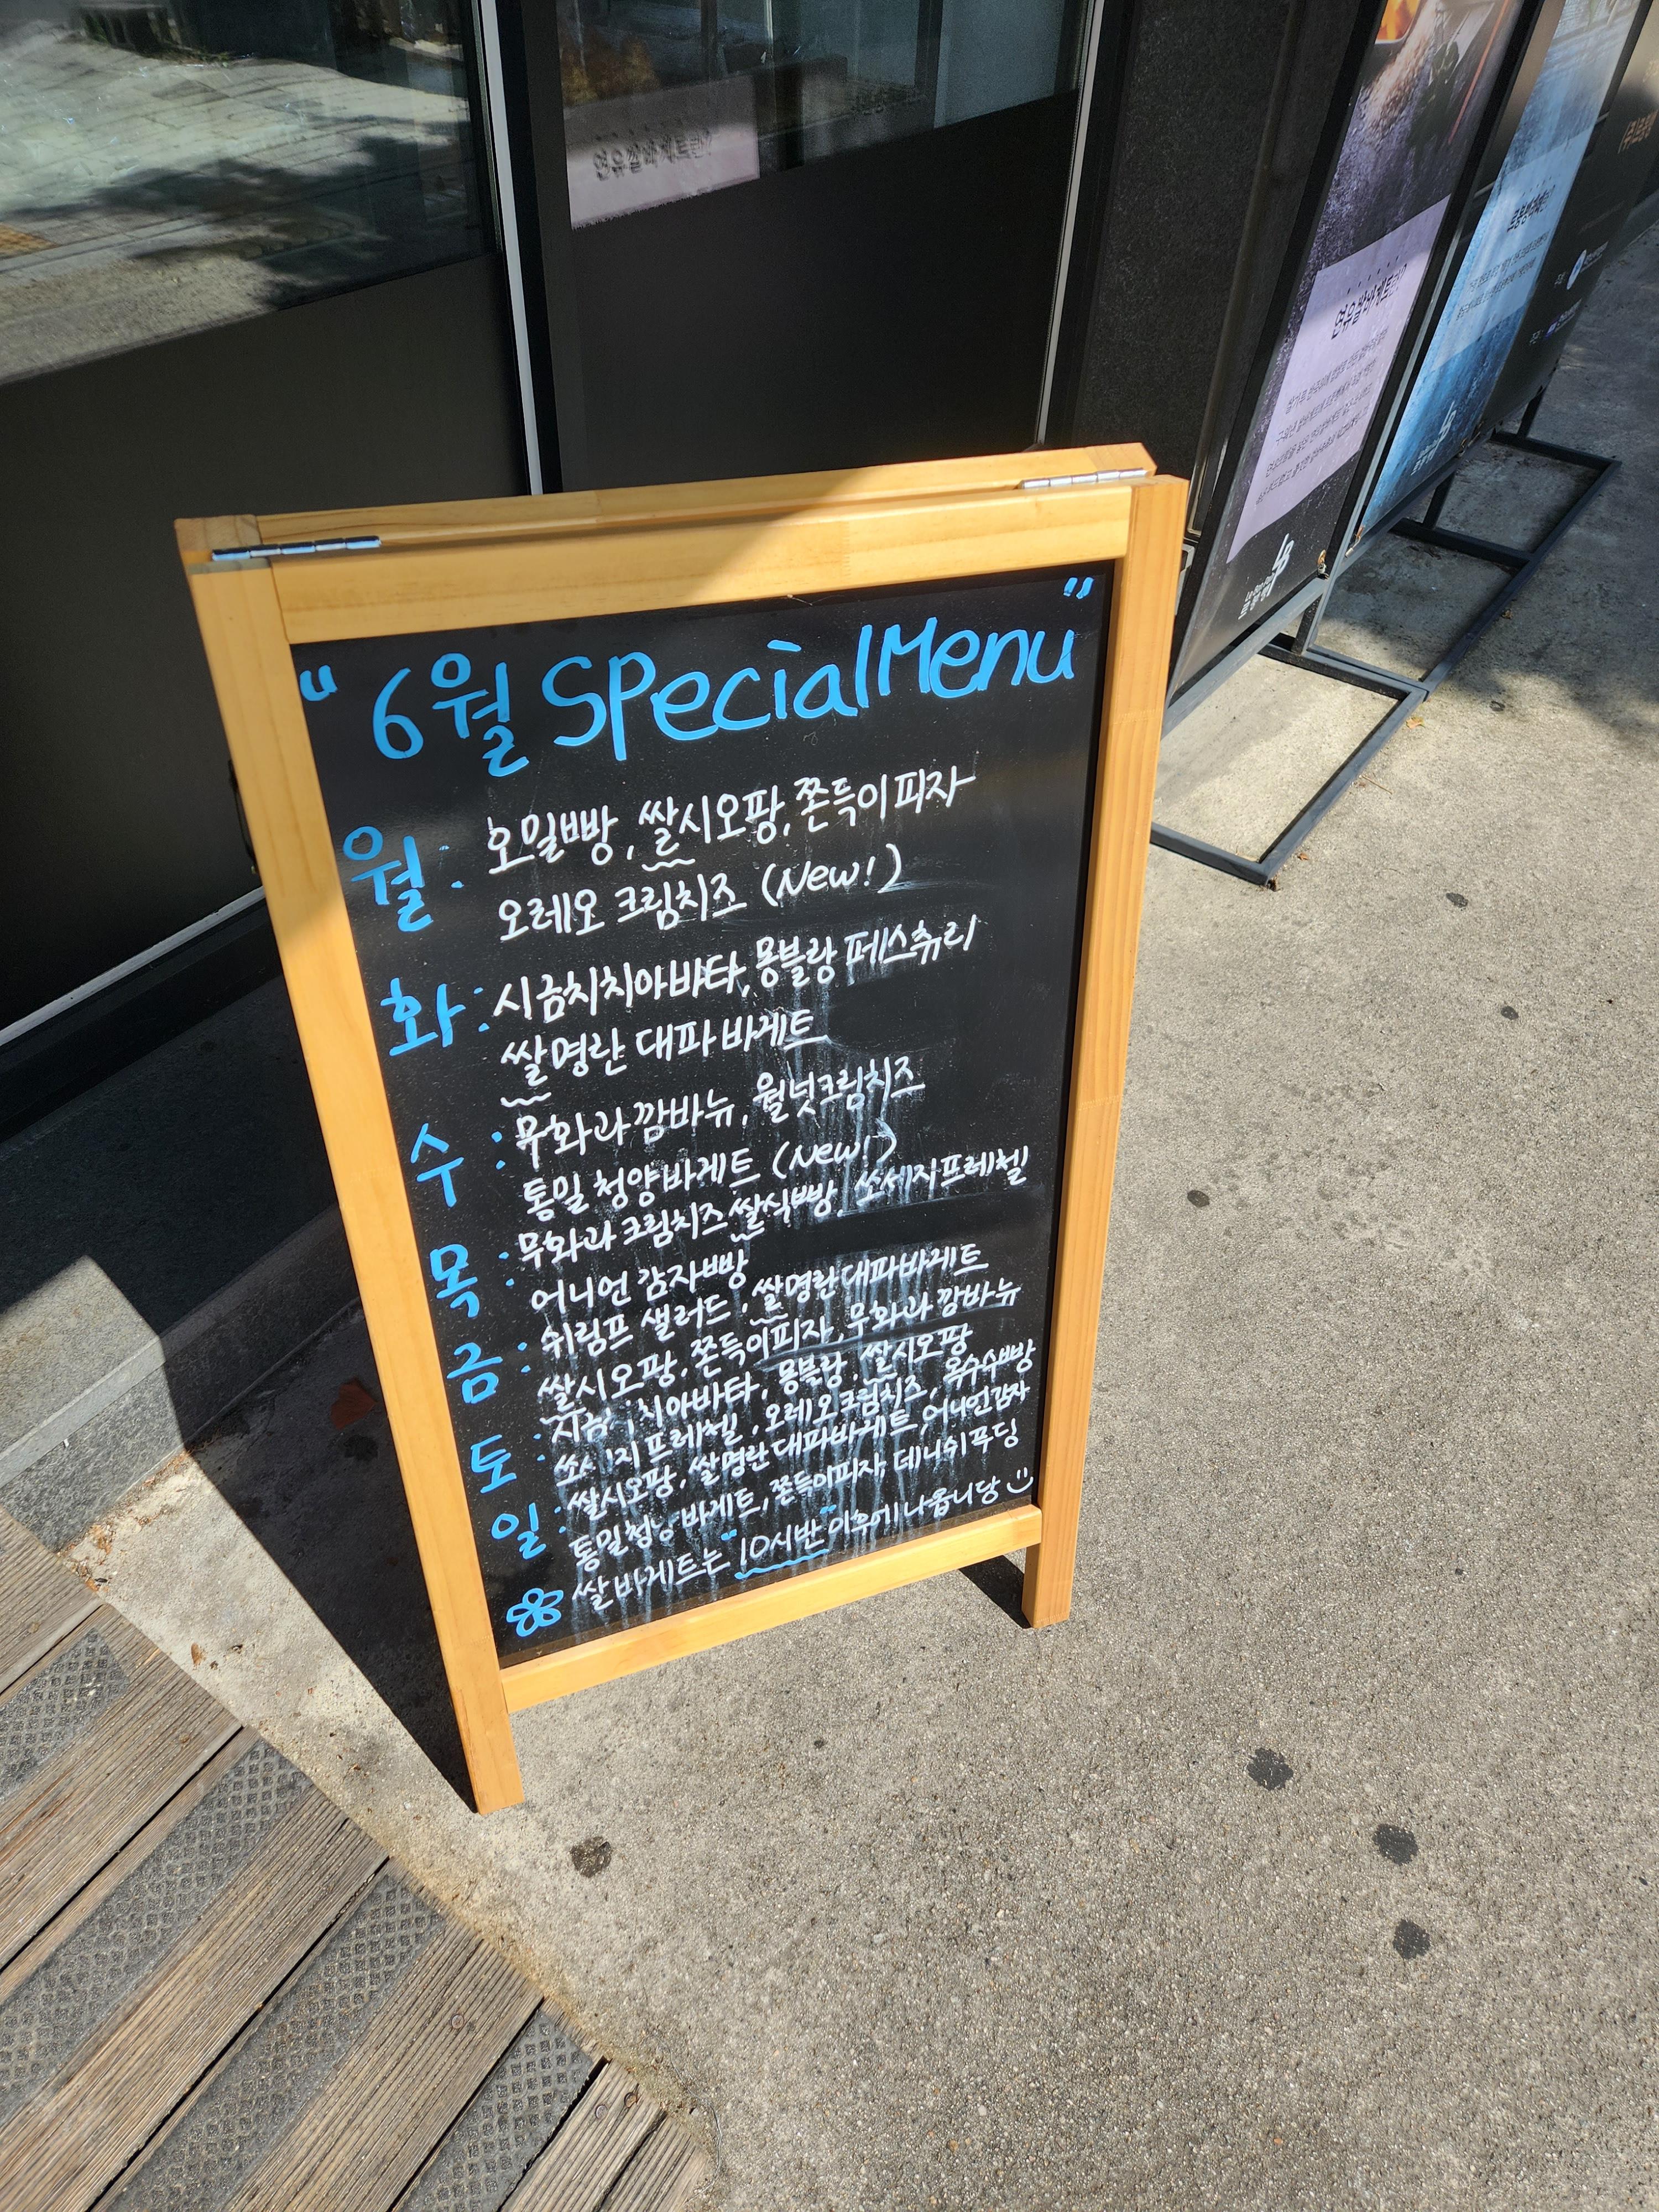 "6월 Special Menu"
월: 호밀빵, 쌀시오팡, 쫀득이피자
오레오 크림치즈 (New!)
화: 시금치치아바타, 몽블랑 페스츄리
쌀명란 대파 바게트
수: 무화과깜바뉴, 월넛크림치즈
통밀 청양바게트 (New!)
목: 무화과 크림치즈 쌀식빵, 쏘세지프레첼
어니언 감자빵
금: 쉬림프 샐러드, 쌀명란대파바게트
쌀시오팡, 쫀득이피자, 무화과 깜바뉴
토: 치아바타, 몽블랑, 쌀시오팡
프레첼, 오레오크림치즈, 옥수수빵
일: 쌀시오팡, 쌀명란대파바게트, 어니언감자
바게트, 쫀득이피자, 데니쉬푸딩
쌀바게트는 "10시반" 이후에 나옵니당
연유쌀바게트란?
연유쌀바게트란?